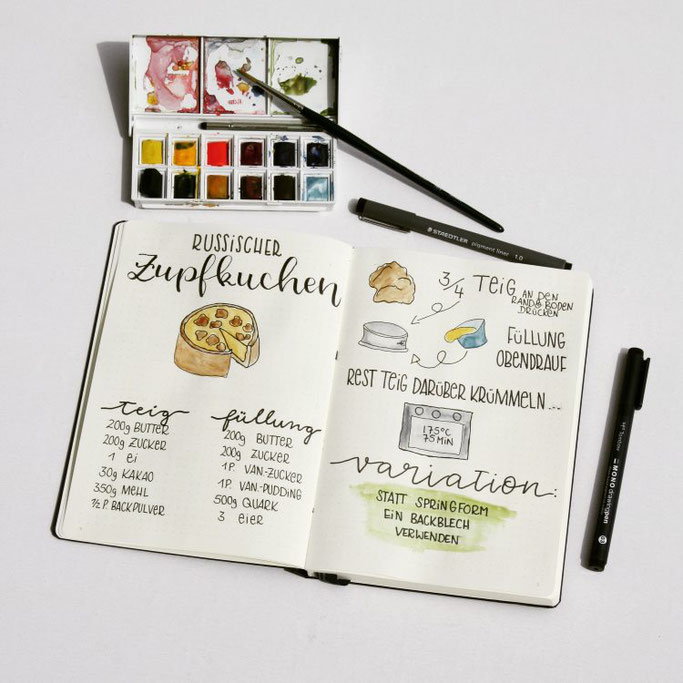 RUSSISCHER
Zupfkuchen
teig
200g BUTTER
200g ZUCKER
1 Ei
30g KAKAO
350g MEHL
½ P. BACKPULVER
füllung
200g BUTTER
200g ZUCKER
1P. VAN-ZUCKER
1P. VAN-PUDDING
500g QUARK
3 EiER
3/4 TEiG AN DEN
RAND & BODEN
DRÜCKEN
FÜLLUNG
OBENDRAUF
REST TEiG DARÜBER KRÜMMELN...
175°C
75 MiN
variation:
STATT SPRiNGFORM
EiN BACKBLECH
VERWENDEN
STAEDTLER pigment liner 1.0
MONO drawing pen